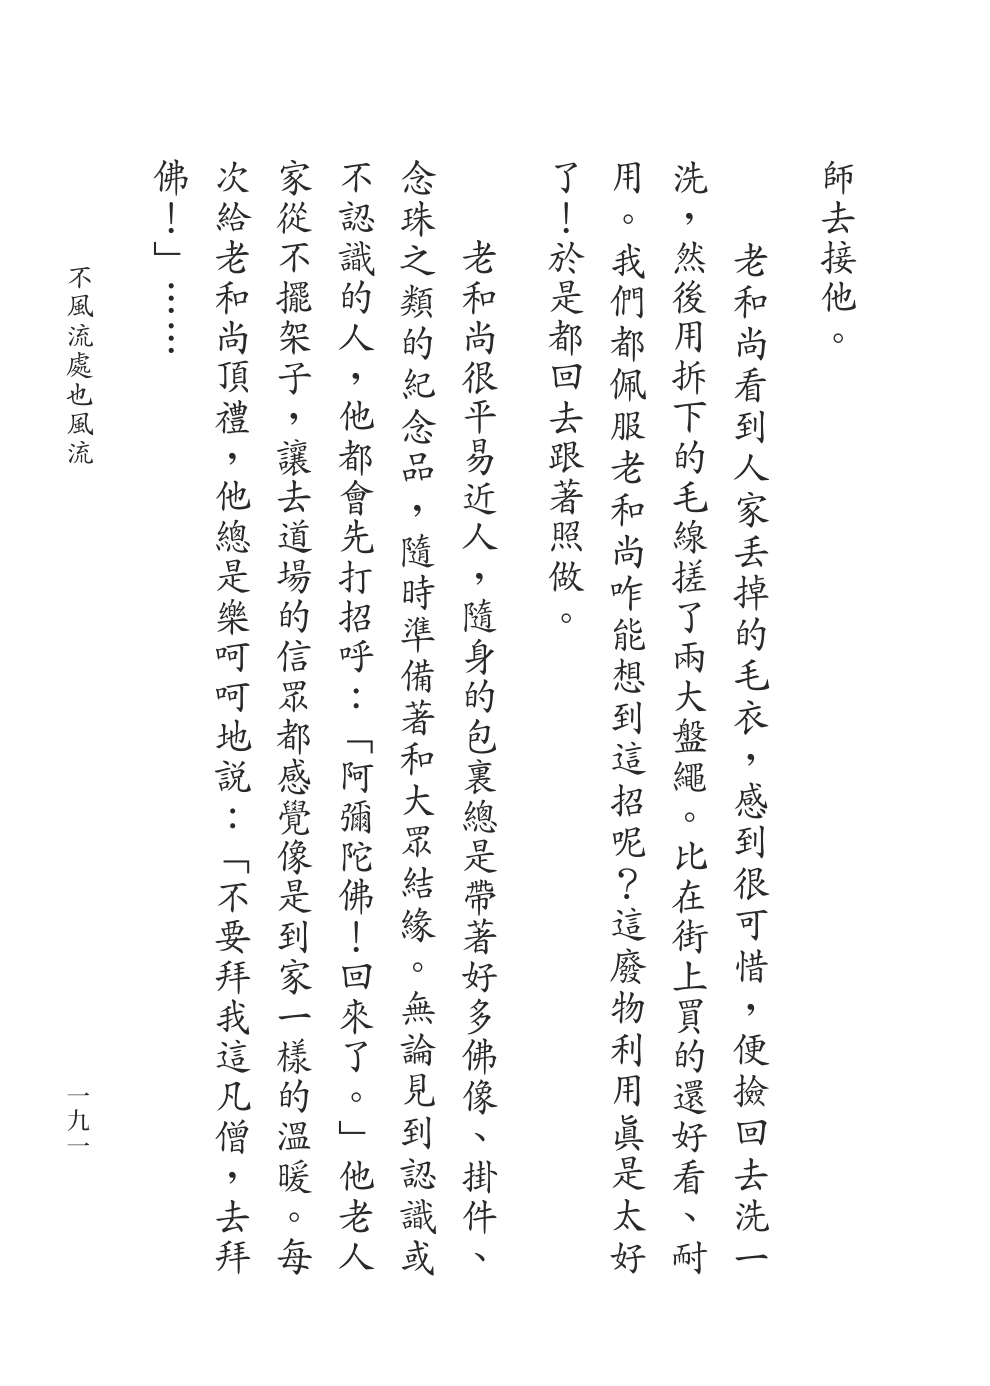 師去接他。
老和尚看到人家丟掉的毛衣，感到很可惜，便撿回去洗一
洗，然後用拆下的毛線搓了兩大盤繩。比在街上買的還好看、耐
用。我們都佩服老和尚咋能想到這招呢？這廢物利用眞是太好
了！於是都回去跟著照做。
老和尚很平易近人，隨身的包裏總是帶著好多佛像、掛件、
念珠之類的紀念品，隨時準備著和大眾結緣。無論見到認識或
不認識的人，他都會先打招呼：「阿彌陀佛！回來了。」他老人
家從不擺架子，讓去道場的信眾都感覺像是到家一樣的溫暖。每
次給老和尚頂禮，他總是樂呵呵地説：「不要拜我這凡僧，去拜
佛！」……
不風流處也風流
一九一